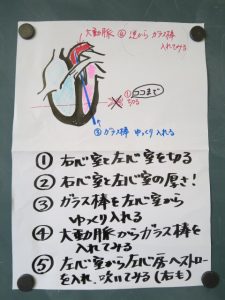 大動脈 ④ 逆から ガラス棒
入れてみる
① ココまで
切る
③ ガラス棒 ゆっくり 入れる
① 右心室と左心室を切る
② 右心室と左心室の厚さ!
③ ガラス棒を左心室から
ゆっくり入れる
④ 大動脈からガラス棒を
入れてみる
⑤ 左心室から左心房へストロー
を入れ、吹いてみる(右も)